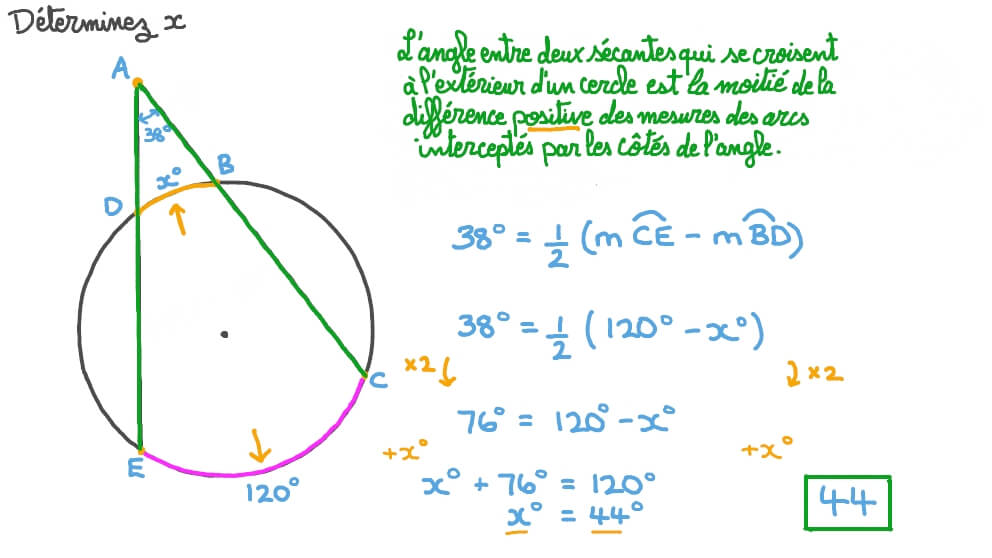 Déterminez x
L'angle entre deux sécantes qui se croisent
à l'extérieur d'un cercle est la moitié de la
différence positive des mesures des arcs
interceptés par les côtés de l'angle.
A
38°
x°
B
D
C
E
120°
38° = 1/2 (m C͡E - m B͡D)
38° = 1/2 (120° - x°)
×2 ×2
76° = 120° - x°
+x° +x°
x° + 76° = 120°
x° = 44°
44